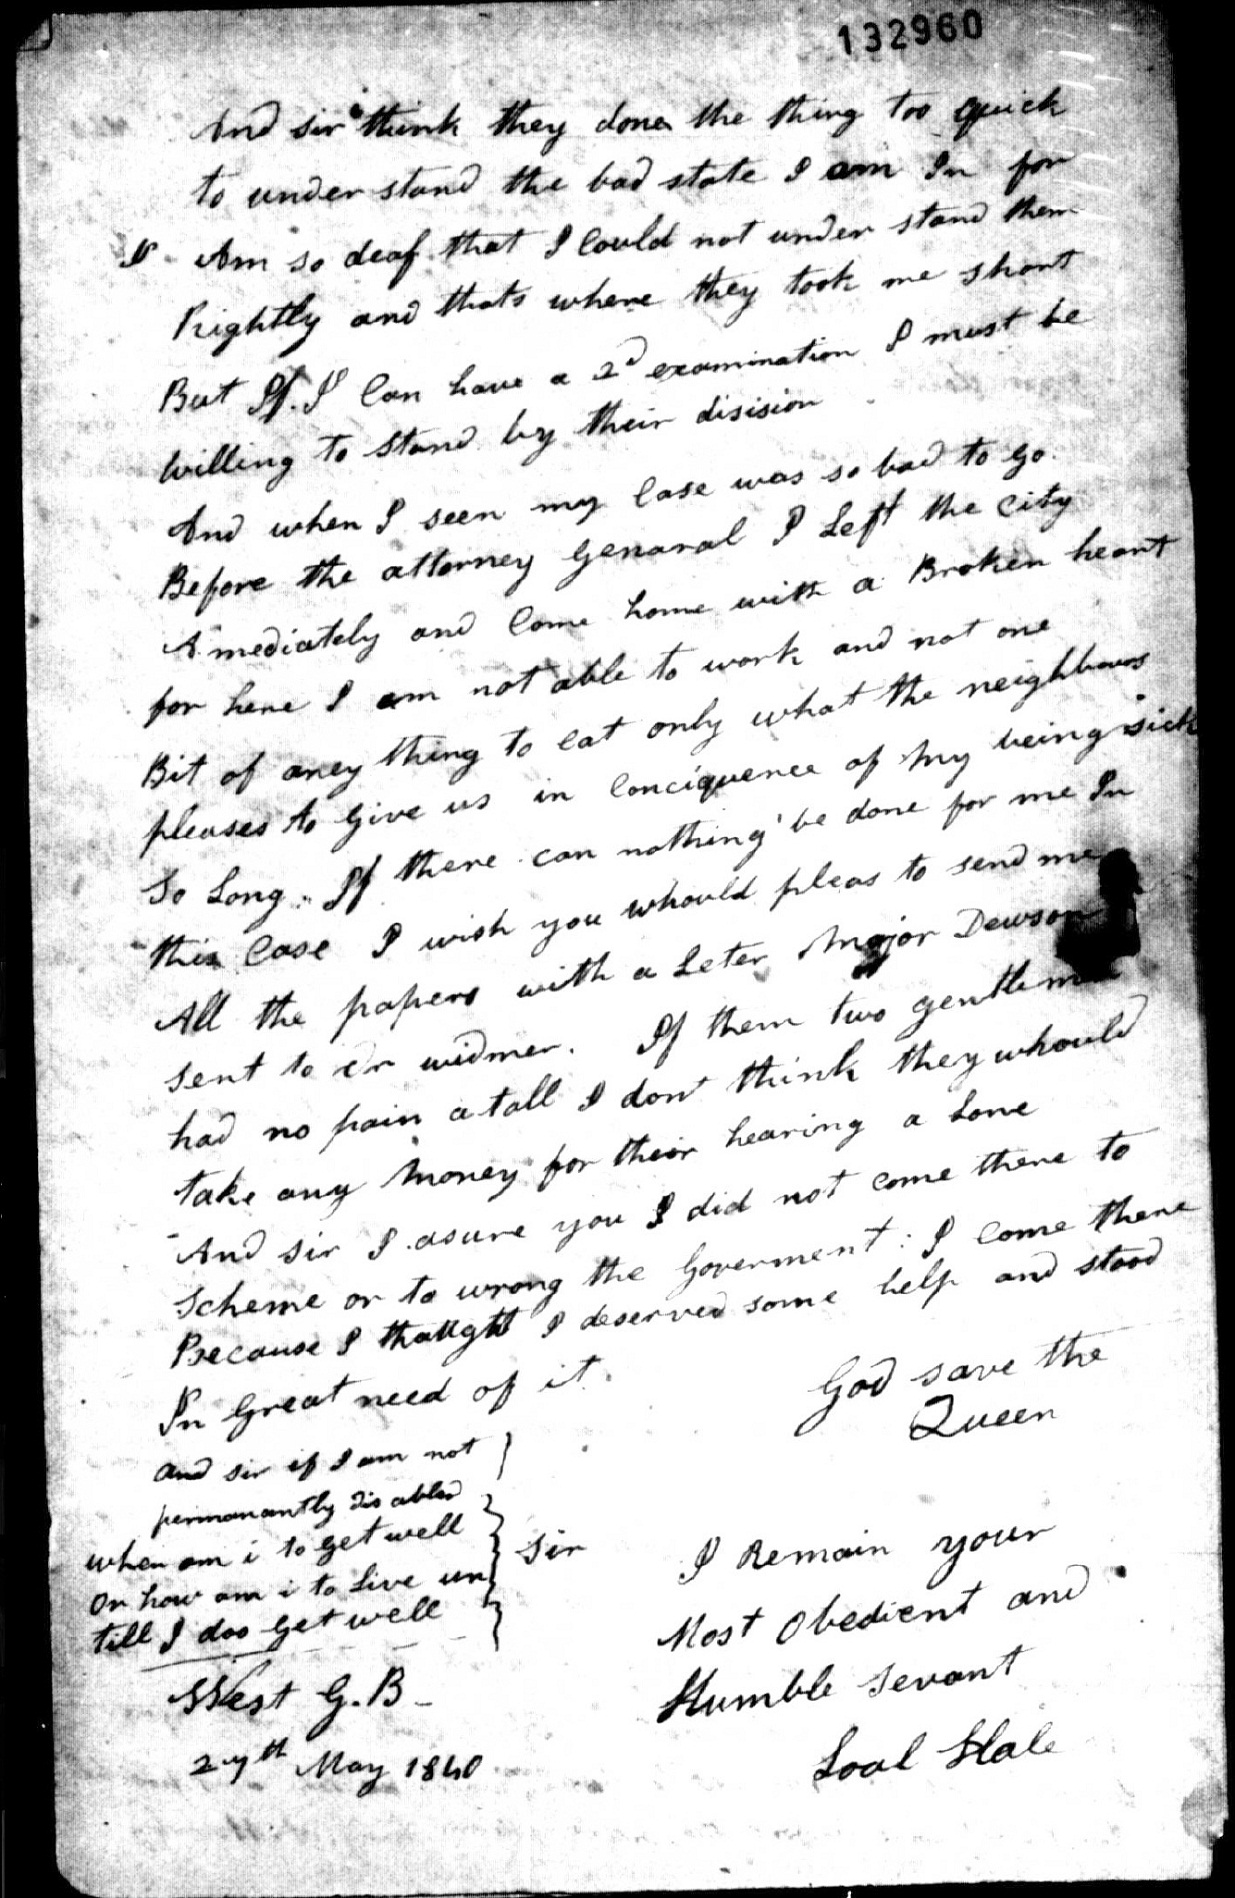 132960
And sir think they done the thing too quick
to under stand the bad state I am In for
I Am so deaf that I Could not under stand them
Rightly and thats where they took me short
But If I Can have a 2d examination I must be
willing to Stand by their disision
And when I seen my Case was so bad to go
Before the attorney Genaral I Left the City
Amediately and Come home with a Broken heart
for here I am not able to work and not one
Bit of aney thing to eat only what the neighbours
pleases to Give us in Conciquence of My being sick
So Long. If there can nothing be done for me In
this Case I wish you whould pleas to send me
All the papers with a Leter Major Dewson
sent to dr widmer. If them two gentlemen
had no pain a tall I dont think they whould
take any Money for their hearing a Lone
And sir I asure you I did not come there to
Scheme or to wrong the Goverment: I Come there
Because I thought I deserved some help and stood
In Great need of it.
God save the
Queen
and sir if I am not
permanantly disabled
when am i to get well
Or how am i to Live un
till I doo Get well
Sir
I Remain your
Most Obedient and
Humble Servant
Loal Hale
West G.B
27th May 1840